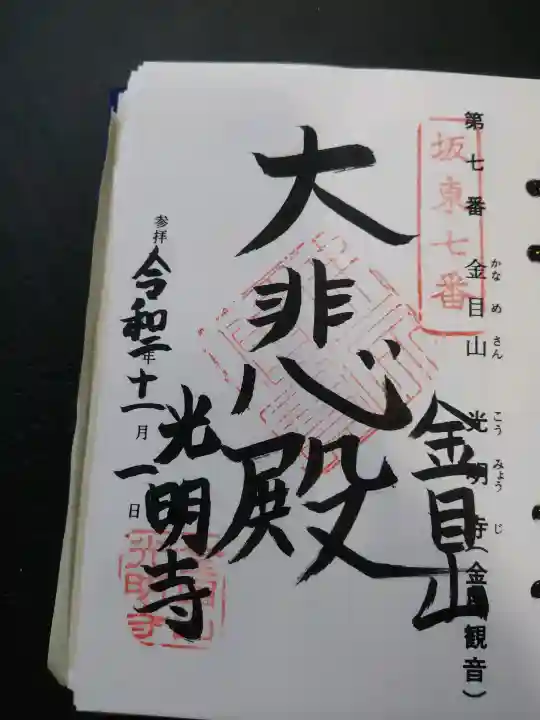 第七番 金目山 光明寺(金目観音)
かなめさん こうみょうじ
坂東七番
金目山
大悲殿
光明寺
参拝 令和二年十一月一日